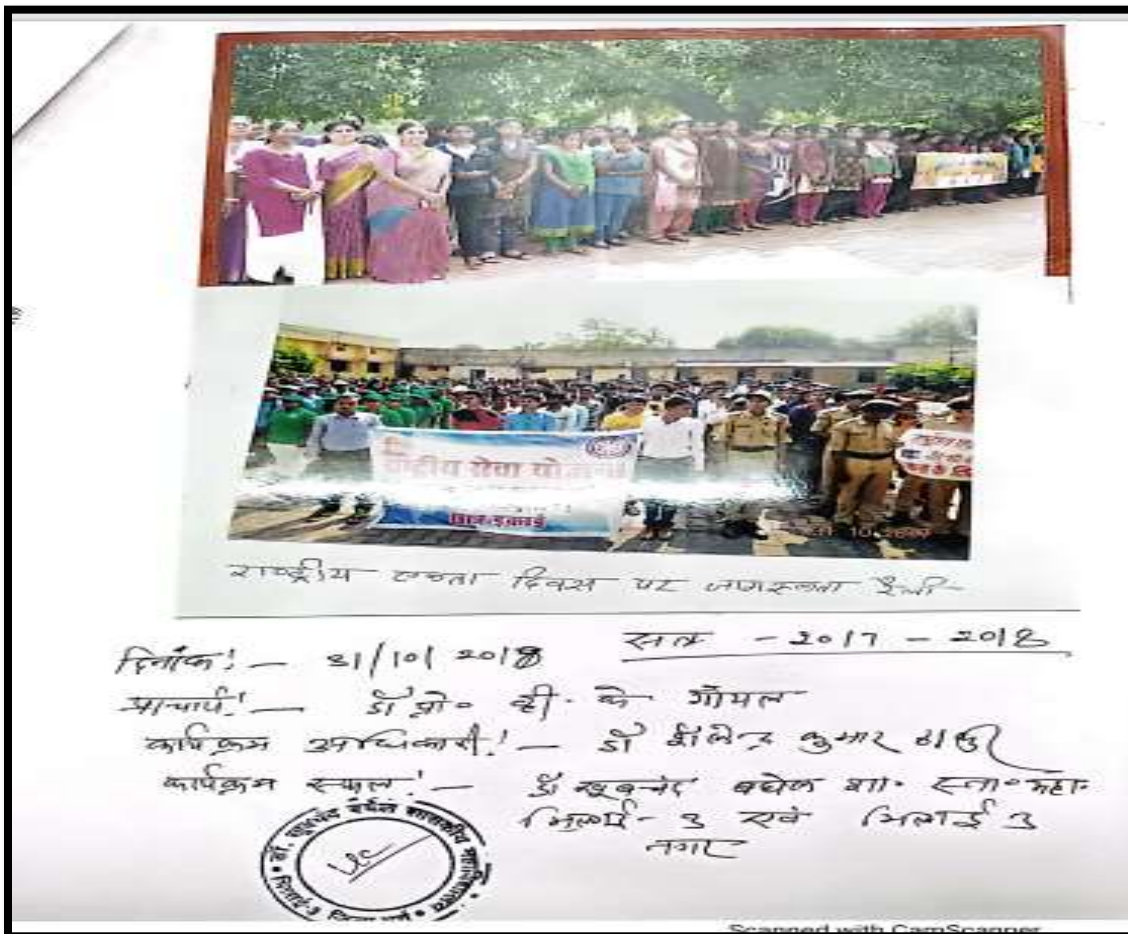 राष्ट्रीय सेवा योजना
31 10 2017
राष्ट्रीय एकता दिवस पर जागरूकता रैली
सत्र - 2017 - 2018
दिनांक :- 31/10/2018
प्राचार्य :- डॉ प्रो॰ व्ही. के गोयल
कार्यक्रम अधिकारी :- डॉ शैलेन्द्र कुमार ठाकुर
कार्यक्रम स्थल :- डॉ खूबचंद बघेल शा॰ स्ना॰ महा॰
भिलाई - 3 एवं भिलाई 3
नगर
डॉ. खूबचंद बघेल शासकीय महाविद्यालय
भिलाई-3 जिला दुर्ग
Scanned with CamScanner